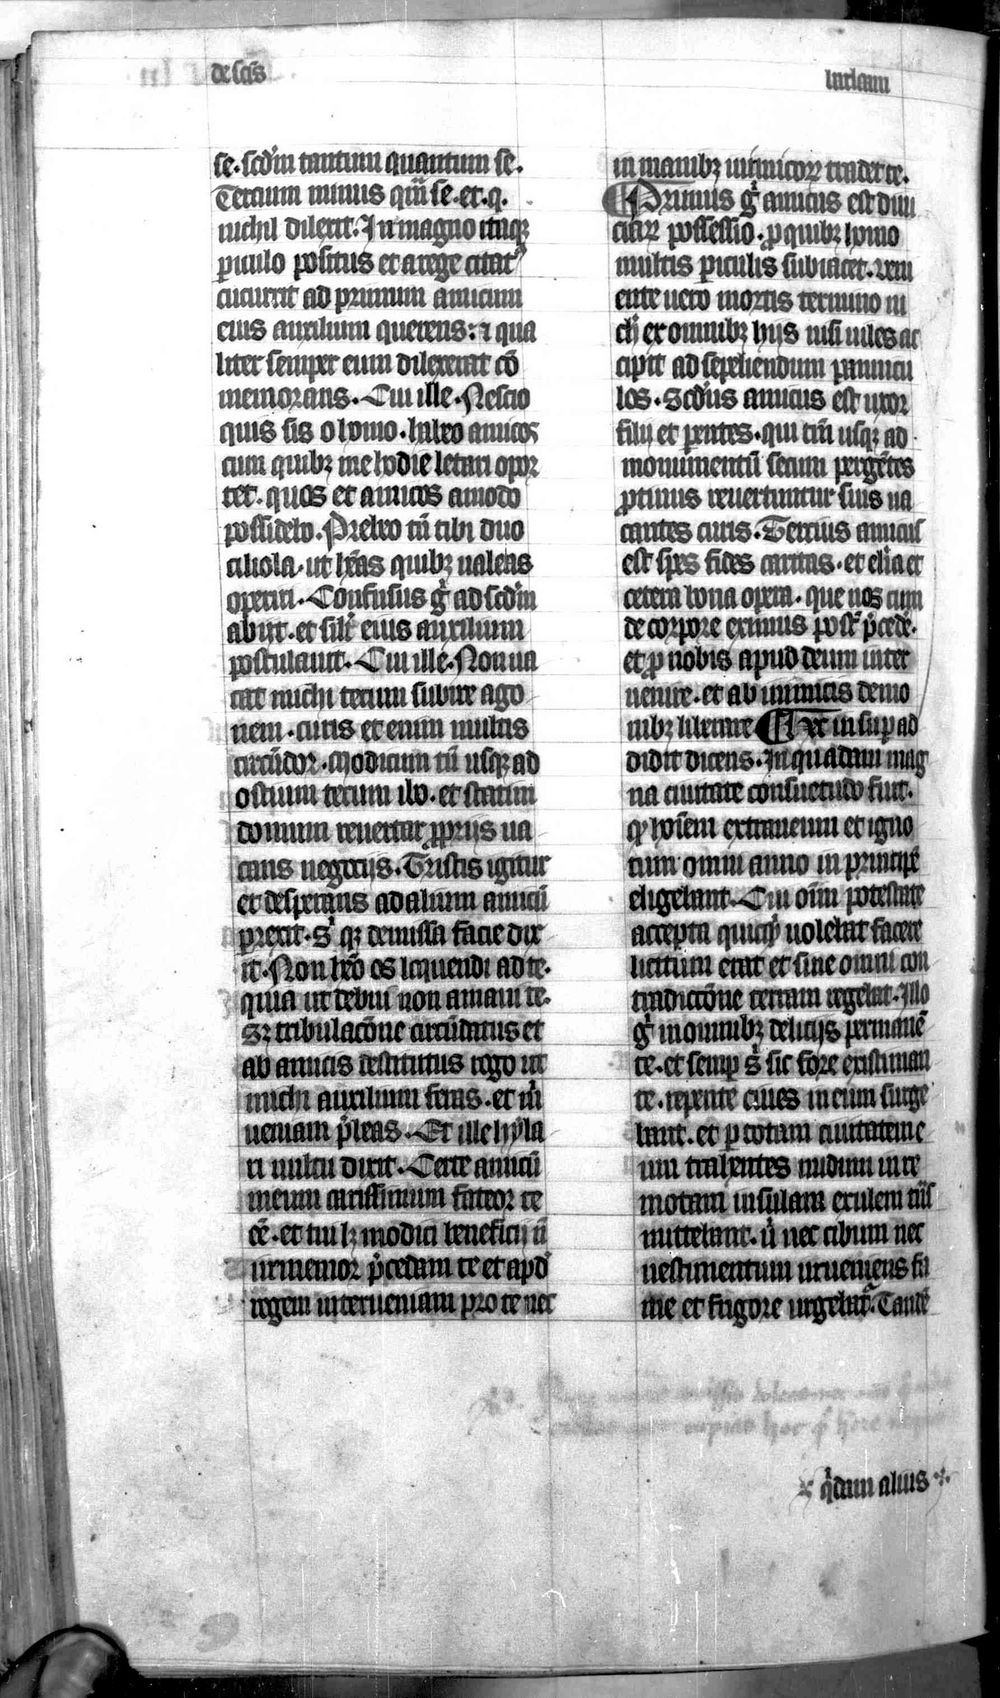 de scīs
se. scd'm tantum quantum se.
Tercium minus qm̄ se. et. q.
nichil dilexit. In magno itaqꝫ
ꝑiculo positus et a rege citatꝰ
cucurrit ad primum amicum
eius auxilium querens: ⁊ qua
liter semper eum dilexerat cō
memorans. Cui ille. Nescio
quis sis o homo. habeo amicos
cum quibꝫ me hodie letari opor
tet. quos et amicos amodo
possidebo. Prebeo tn̄ tibi duo
ciliola. ut hēas quibꝫ ualeas
operiri. Confusus gͥ ad scd'm
abiit. et silr̄ eius auxilium
postulauit. Cui ille. Non ua
cat michi tecum subire ago
nem. curis et enim multis
circūdor. Modicum tn̄ usqꝫ ad
ostium tecum ibo. et statim
domum reuertar ꝓprijs ua
cans negocijs. Tristis igitur
et desperans ad alium amicū
ꝑrexit. Sͥ qꝫ demissa facie dix
it. Non hēo os loquendi ad te.
quia ut debui non amaui te.
Sꝫ tribulacōne circūdatus et
ab amicis destitutus rogo ut
michi auxilium feras. et m̄
ueniam p̄beas. Et ille hyla
ri uultu dixit. Certe amicū
meum carissimum fateor te
eē. et tui hꝫ modici beneficij n̄
inmemor p̄cedam te et apd'
regem interueniam pro te nec
in manibꝫ inimicoꝝ tradet te.
Primus gͥ amicus est diui
ciaꝝ possessio. ꝓ quibꝫ homo
multis ꝑiculis subiacet. ueni
ente uero mortis termino ni
ch̄ ex omnibꝫ hijs nisi uiles ac
cipit ad sepeliendum pannicu
los. Scd'us amicus est uxor
filij et ꝑentes. qui tm̄ usqꝫ ad
monumentū secum pergētes
ꝓtinus reuertuntur suis ua
cantes curis. Tercius amicus
est spes fides caritas. et el'ia et
cetera bona opera. que nos cum
de corpore eximus post̄ p̄cedē.
et ꝓ nobis apud deum inter
uenire. et ab inimicis demo
nibꝫ liberare Hec insuꝑ ad
didit dicens. In quadam mag
na ciuitate consuetudo fuit.
qꝫ hoīem extraneum et igno
tum omni anno in principē
eligebant. Cui oīm potestate
accepta quicqͥd uolebat facere
licitum erat et sine omni con
tradictōne terram regebat. Illo
gͥ in omnibꝫ delicijs permanē
te. et semꝑ sͥ sic fore existiman
te. repente ciues in eum surge
bant. et ꝑ totam ciuitatem e
um trahentes nudum in re
motam insulam exulem tn̄s
mittebant. ū nec cibum nec
uestimentum inueniens fa
me et frigore urgebat᷑. Tandē
qͥdam alius